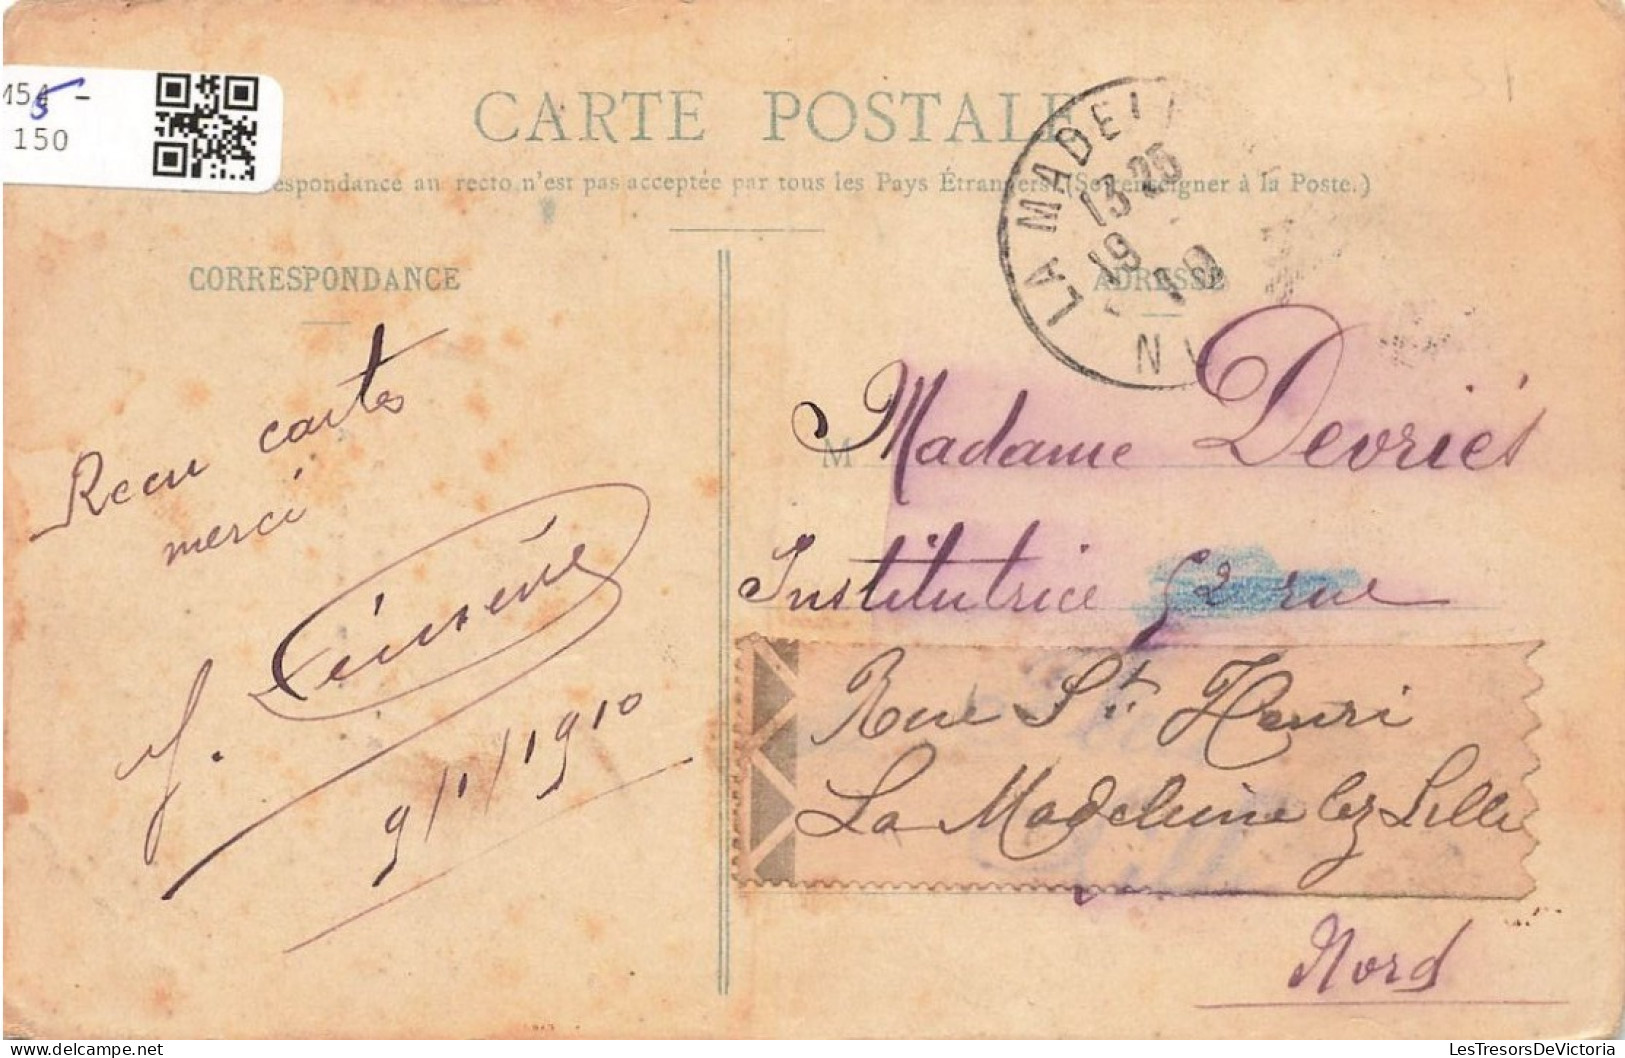 M54 -
5
150
CARTE POSTALE
espondance au recto n'est pas acceptée par tous les Pays Étrangers. (Se renseigner à la Poste.)
CORRESPONDANCE
ADRESSE
LA MADELE
13 25
19
10
N
Recu cartes
merci
J.
9/1/1910
M
Madame Devriés
Institutrice 52 rue
Rue St. Henri
La Madeleine lez Lille
Nord
LesTresorsDeVictoria